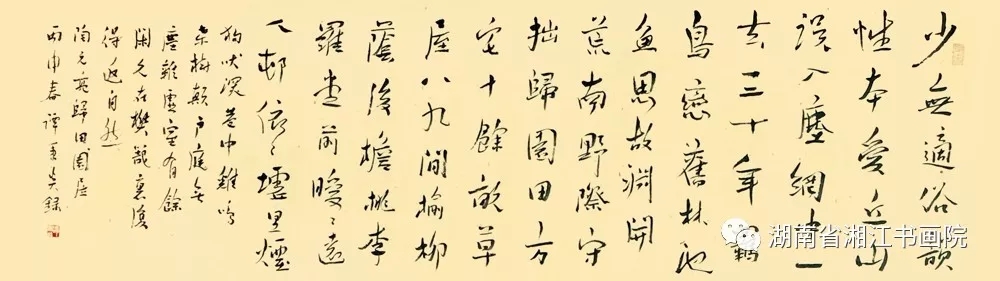 少無適俗韻
性本愛丘山
誤入塵網中一
去三十年羈
鳥戀舊林池
魚思故淵開
荒南野際守
拙歸園田方
宅十餘畝草
屋八九間榆柳
蔭後檐桃李
羅堂前曖〻遠
人邨依〻墟里煙
狗吠深巷中雞鳴
桑樹顛戶庭無
塵雜虛室有餘
閑久在樊籠裏復
得返自然
陶元亮歸田園居
丙申春譚秉炎錄
湖南省湘江书画院